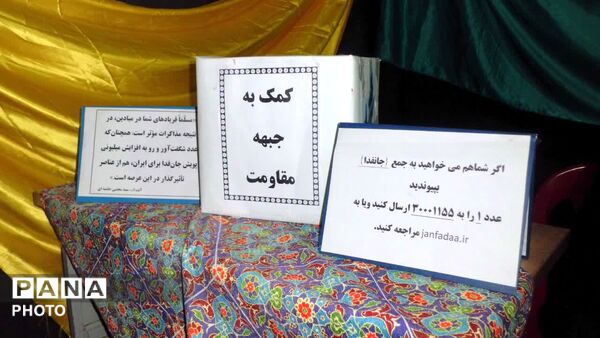 «مسلّماً فریادهای شما در میادین، در
نتیجه مذاکرات مؤثر است؛ همچنان‌که
عدد شگفت‌آور و رو به افزایش میلیونی
پویش جان‌فدا برای ایران، هم از عناصر
تأثیرگذار در این عرصه است.»
کمک به
جبهه
مقاومت
اگر شماهم می خواهید به جمع (جانفدا)
بپیوندید
عدد ۱ را به ۳۰۰۰۱۱۵۵ ارسال کنید ویا به
janfadaa.ir مراجعه کنید.
PANA
PHOTO